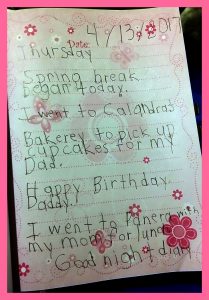 4/13/2017
Date:
Thursday
Spring break
began today.
I went to Calandras
Bakerey to pick up
cupcakes for my
Dad.
Happy Birthday
Daddy.
I went to Panera with
my mom for lunch
Good night diary